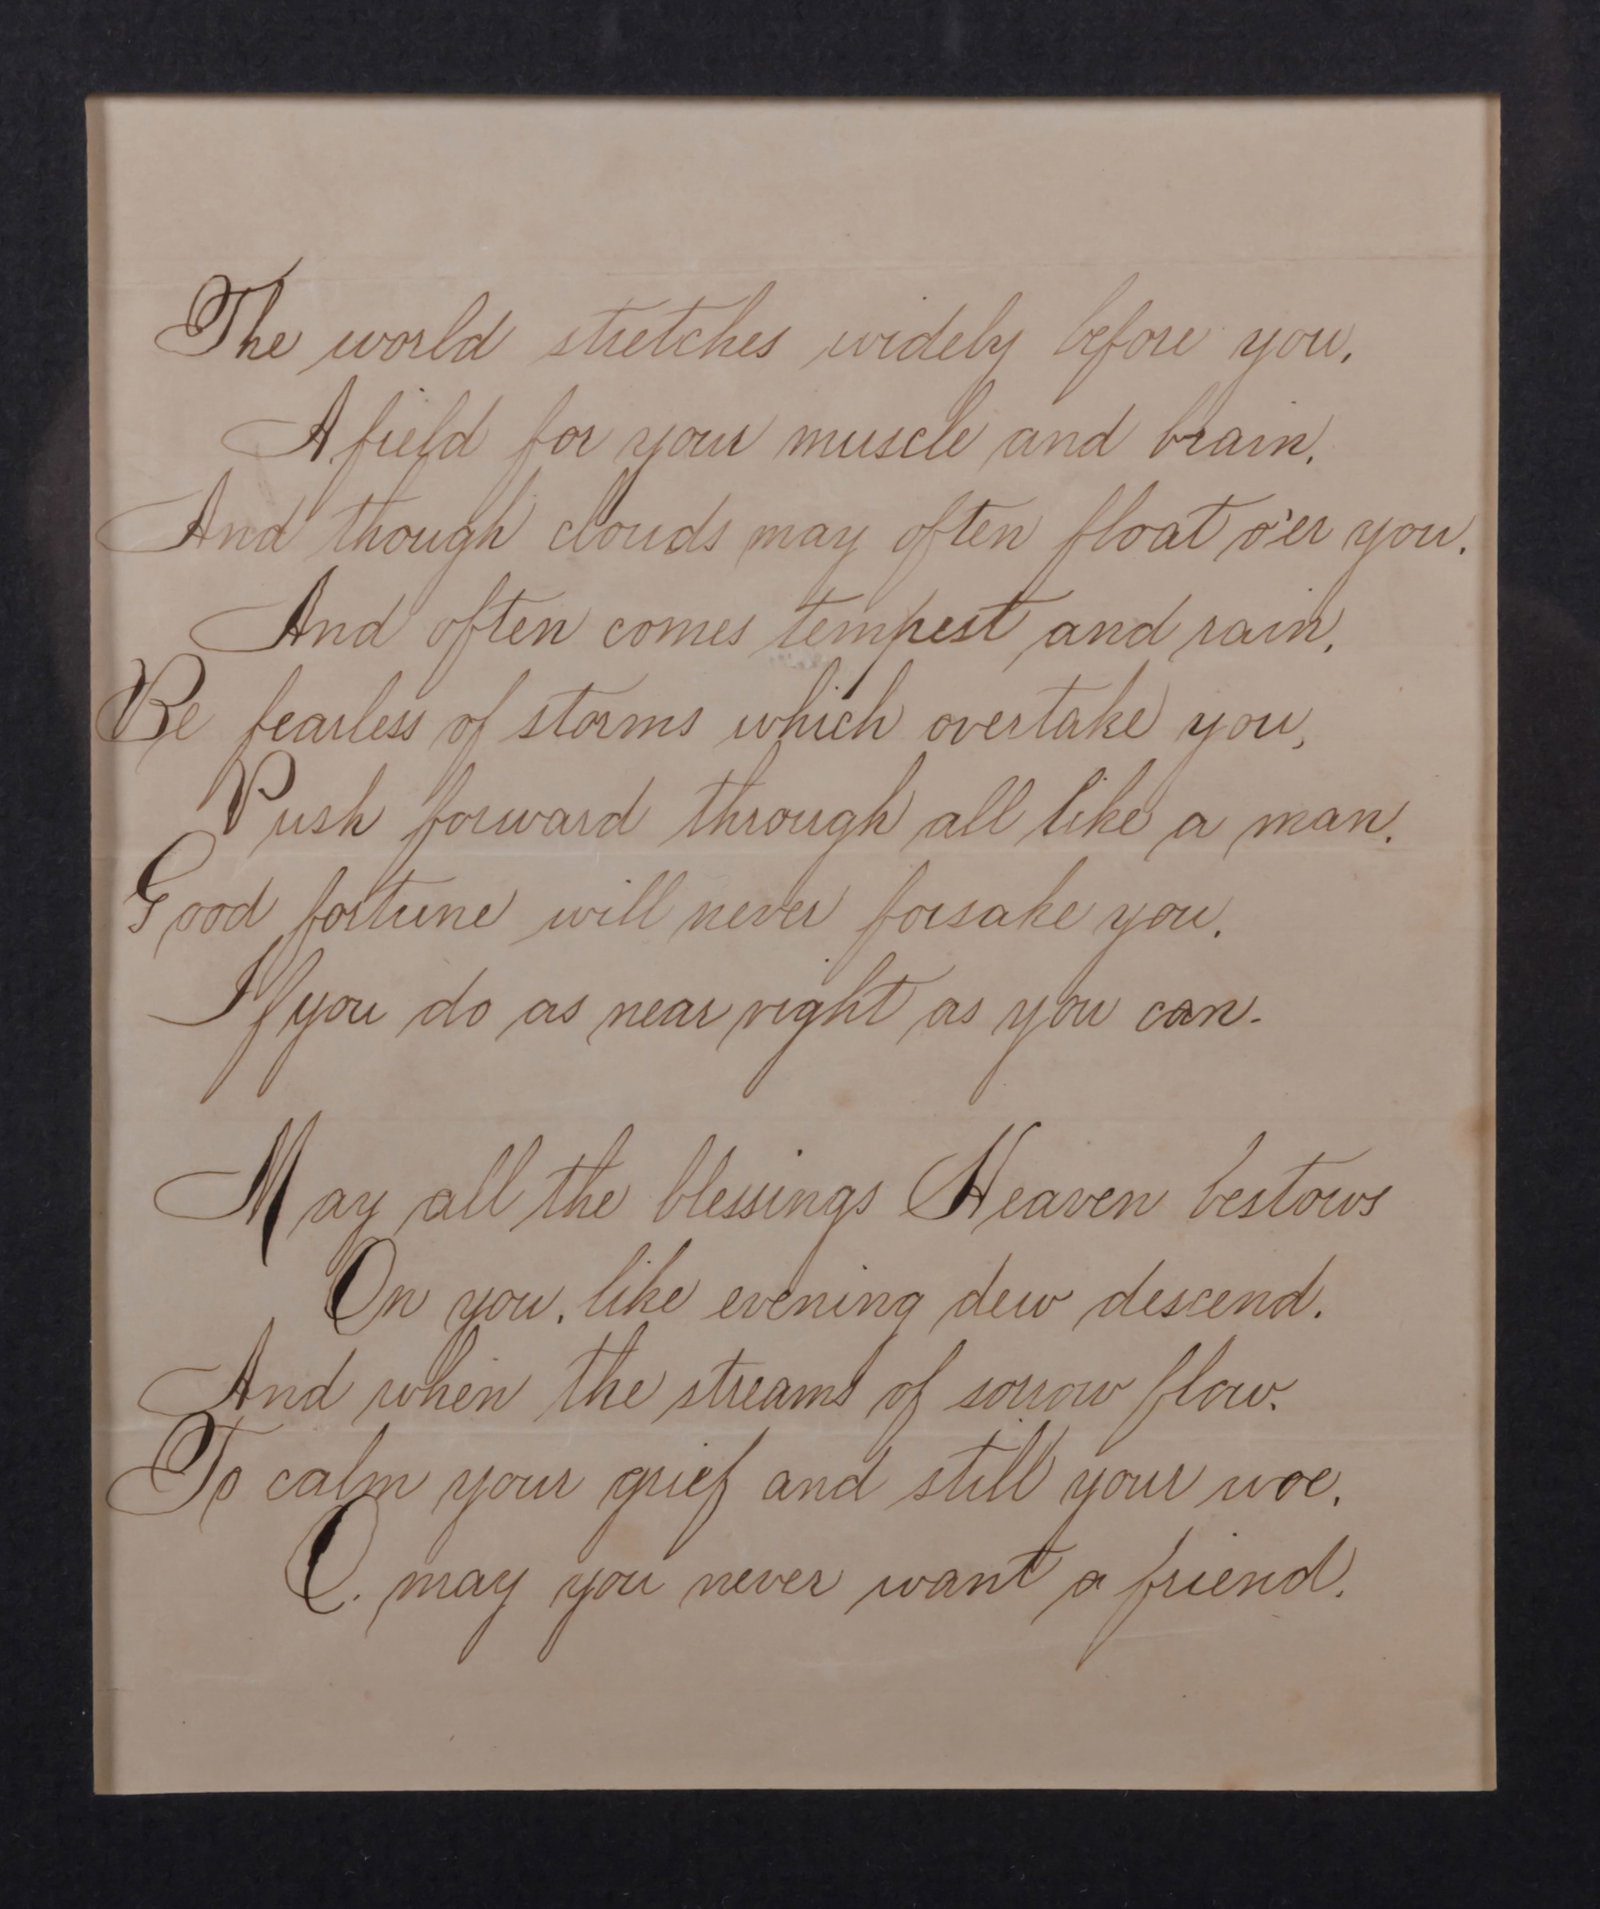 The world stretches widely before you,
A field for your muscle and brain,
And though clouds may often float o'er you.
And often comes tempest and rain,
Be fearless of storms which overtake you,
Push forward through all like a man.
Good fortune will never forsake you.
If you do as near right as you can.
May all the blessings Heaven bestows
On you, like evening dew descend.
And when the streams of sorrow flow.
To calm your grief and still your woe,
O. may you never want a friend.